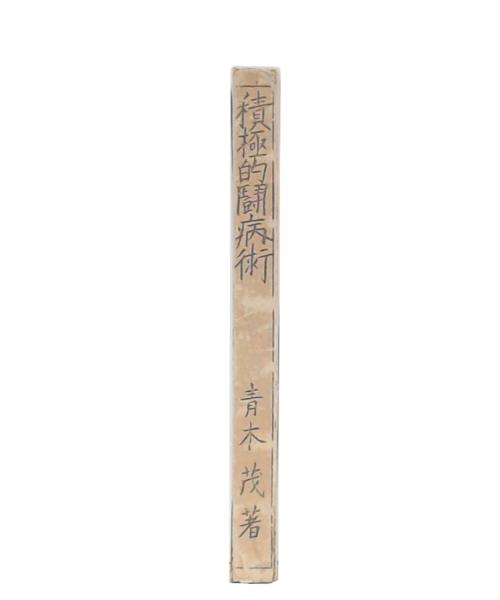 積極的鬪病術
青木茂著